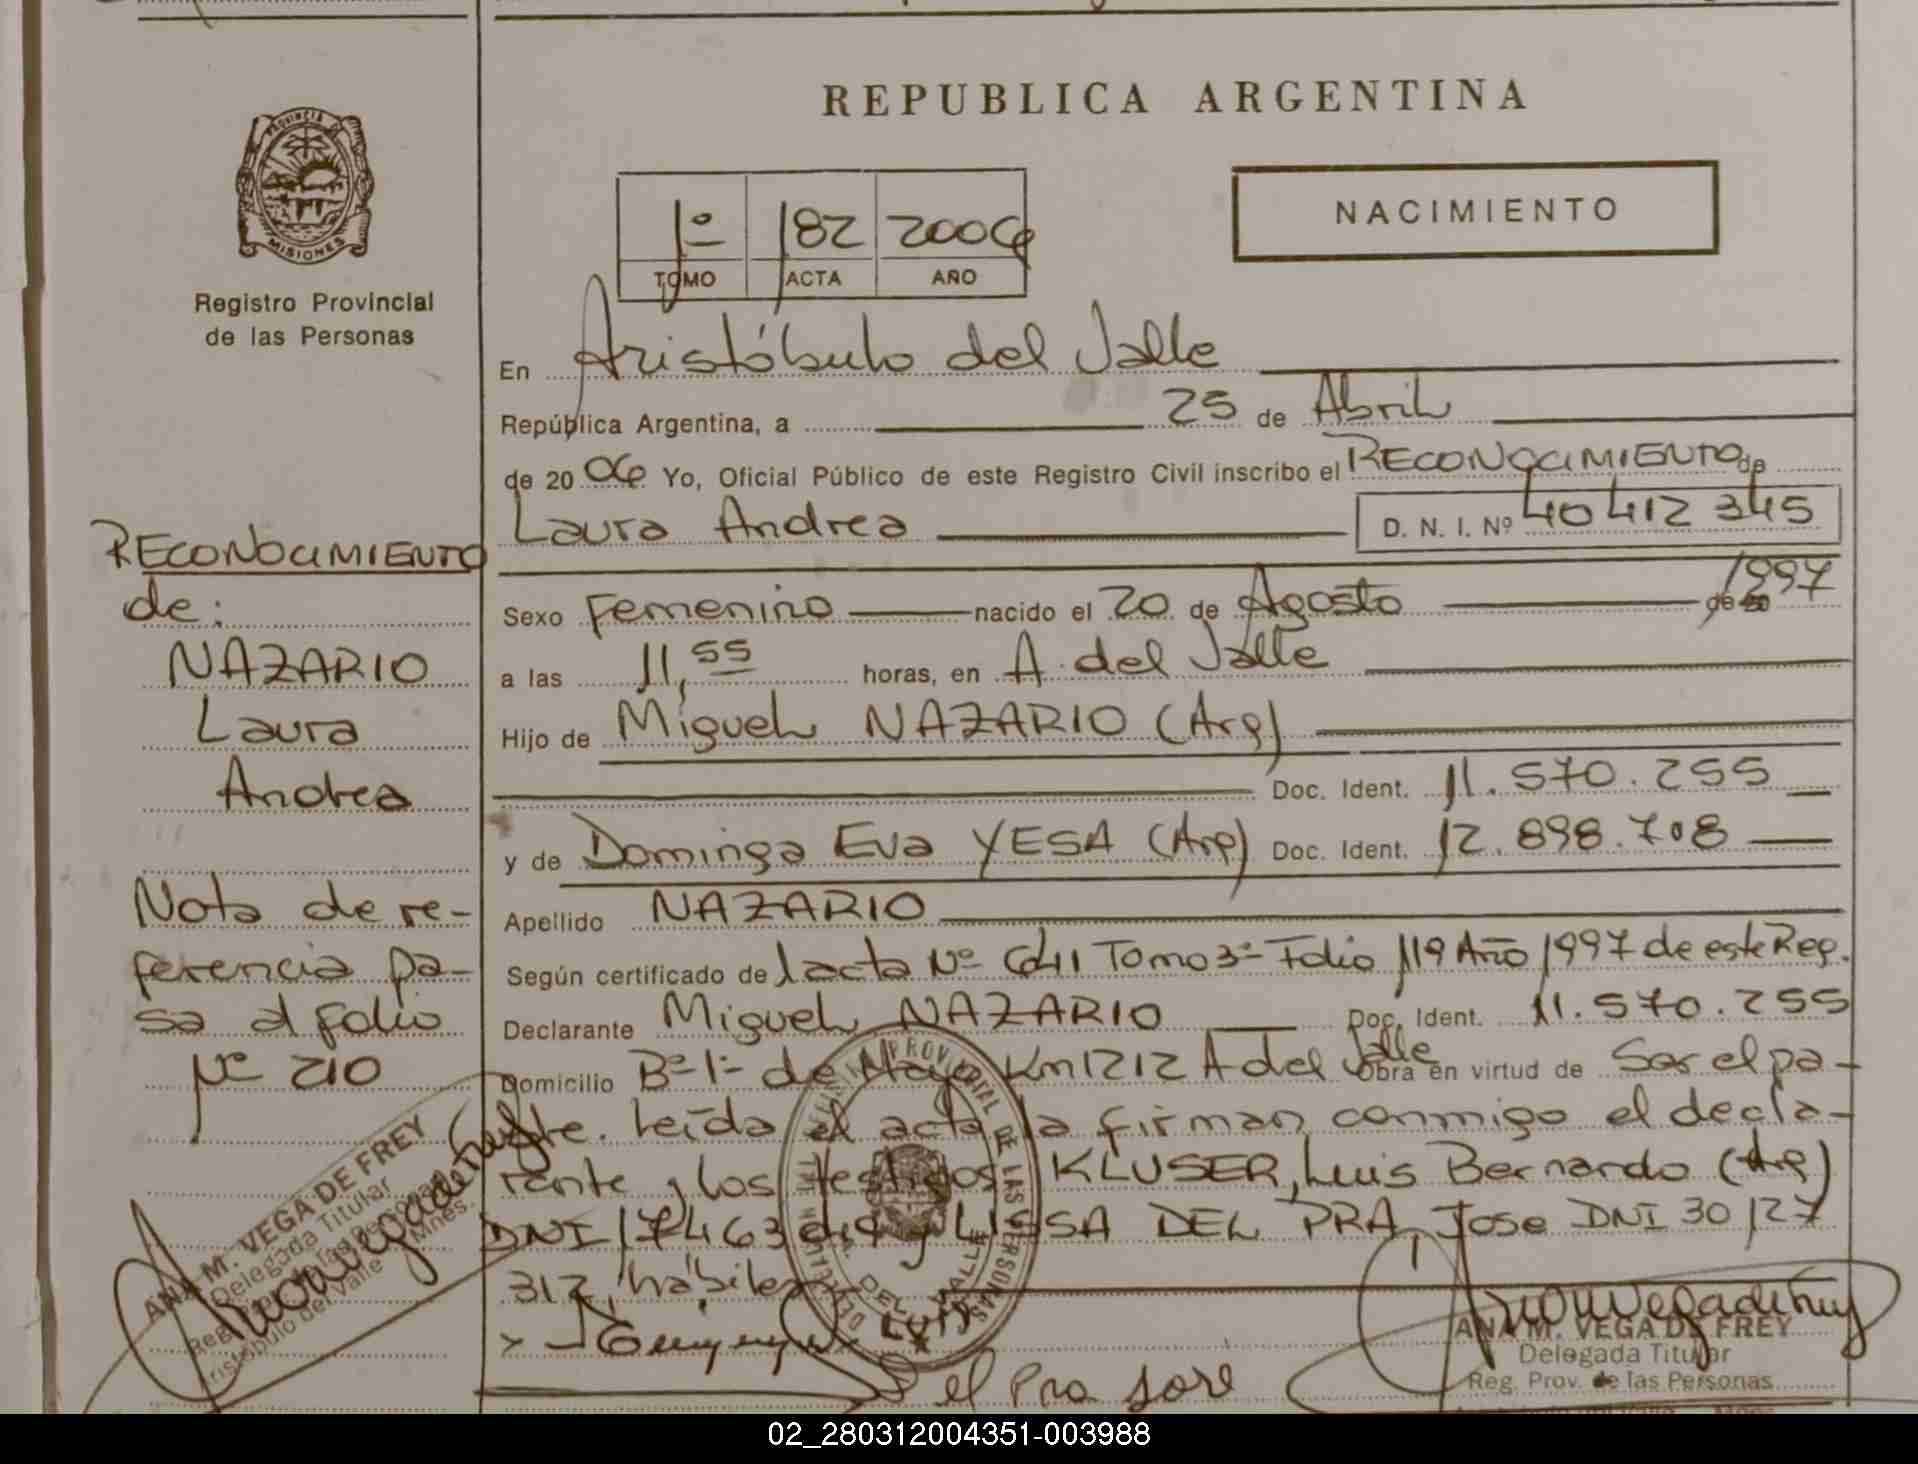 REPUBLICA ARGENTINA
PROVINCIA DE
MISIONES
Registro Provincial
de las Personas
NACIMIENTO
1º 182 2006
TOMO ACTA AÑO
En Aristóbulo del Valle
República Argentina, a 25 de Abril
de 20 06 Yo, Oficial Público de este Registro Civil inscribo el RECONOCIMIENTO de
Laura Andrea D. N. I. Nº 40 412 345
Sexo Femenino nacido el 20 de Agosto de 1997
a las 11,55 horas, en A. del Valle
Hijo de Miguel NAZARIO (Arg)
Doc. Ident. 11.570.255
y de Dominga Eva YESA (Arg) Doc. Ident. 12.898.708
Apellido NAZARIO
Según certificado de l acta Nº 641 Tomo 3º Folio 119 Año 1997 de este Reg.
Declarante Miguel NAZARIO Doc. Ident. 11.570.255
Domicilio Bº 1º de Mayo Km 1212 A del Valle Obra en virtud de Ser el pa-
dre. Leída el acta la firman conmigo el decla-
rante y los testigos KLUSER, Luis Bernardo (Arg)
DNI 17463 y DEL PRA, Jose DNI 30 127
312, hábiles
el Pra Jose
RECONOCIMIENTO
de:
NAZARIO
Laura
Andrea
Nota de re-
ferencia pa-
sa al folio
Nº 210
ANA M. VEGA DE FREY
Delegada Titular
Reg. Prov. de las Personas
Aristóbulo del Valle Mnes.
ANA M. VEGA DE FREY
Delegada Titular
Reg. Prov. de las Personas
02_280312004351-003988